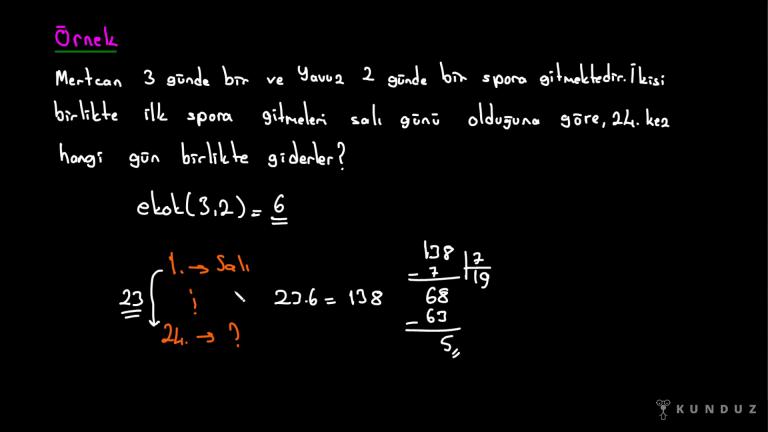 Örnek
Mertcan 3 günde bir ve Yavuz 2 günde bir spora gitmektedir. İkisi
birlikte ilk spora gitmeleri salı günü olduğuna göre, 24. kez
hangi gün birlikte giderler?
ekok(3,2) = 6
1. → Salı
23 ⋮ 23.6 = 138
24. → ?
138 7
- 7 19
68
- 63
5
KUNDUZ